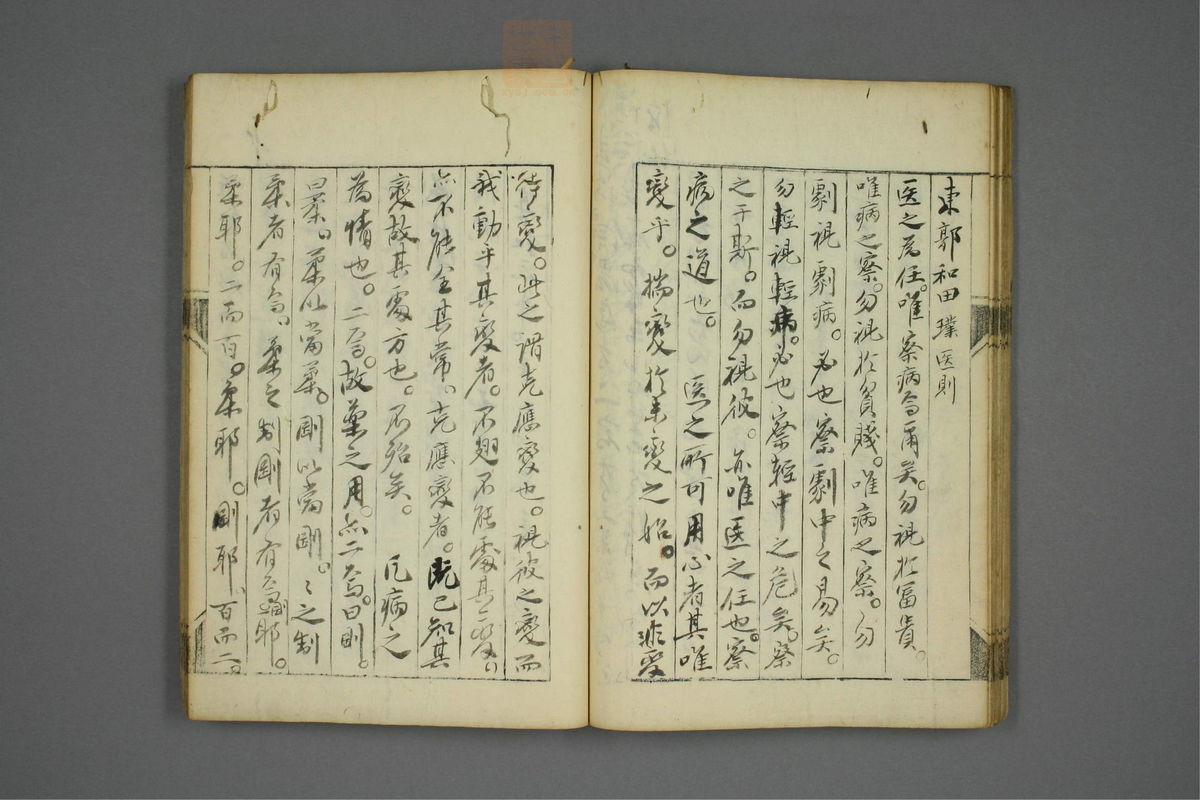 東郭和田璞医則
医之為任。唯察病而爾矣。勿視於富貴。
唯病之察。勿視於貧賤。唯病之察。勿
劇視劇病。必也察劇中之易矣。
勿輕視輕病。必也察輕中之危矣。察
之于斯。而勿視彼。亦唯医之任也。察
病之道也。　医之所可用心者其唯
變乎。揣變於未變之始。而以非變
待變。此之謂克應變也。視彼之變而
我動乎其變者。不翅不能處其變。
亦不能全其常、克應變者。既已知其
變故其處方也。不殆矣。　凡病之
為情也。二焉。故藥之用。亦二焉。曰剛。
曰柔。柔以當柔。剛以當剛。〻之制
柔者有焉。柔之制剛者有焉剛耶。
柔耶。二而百。柔耶。剛耶、百而二。